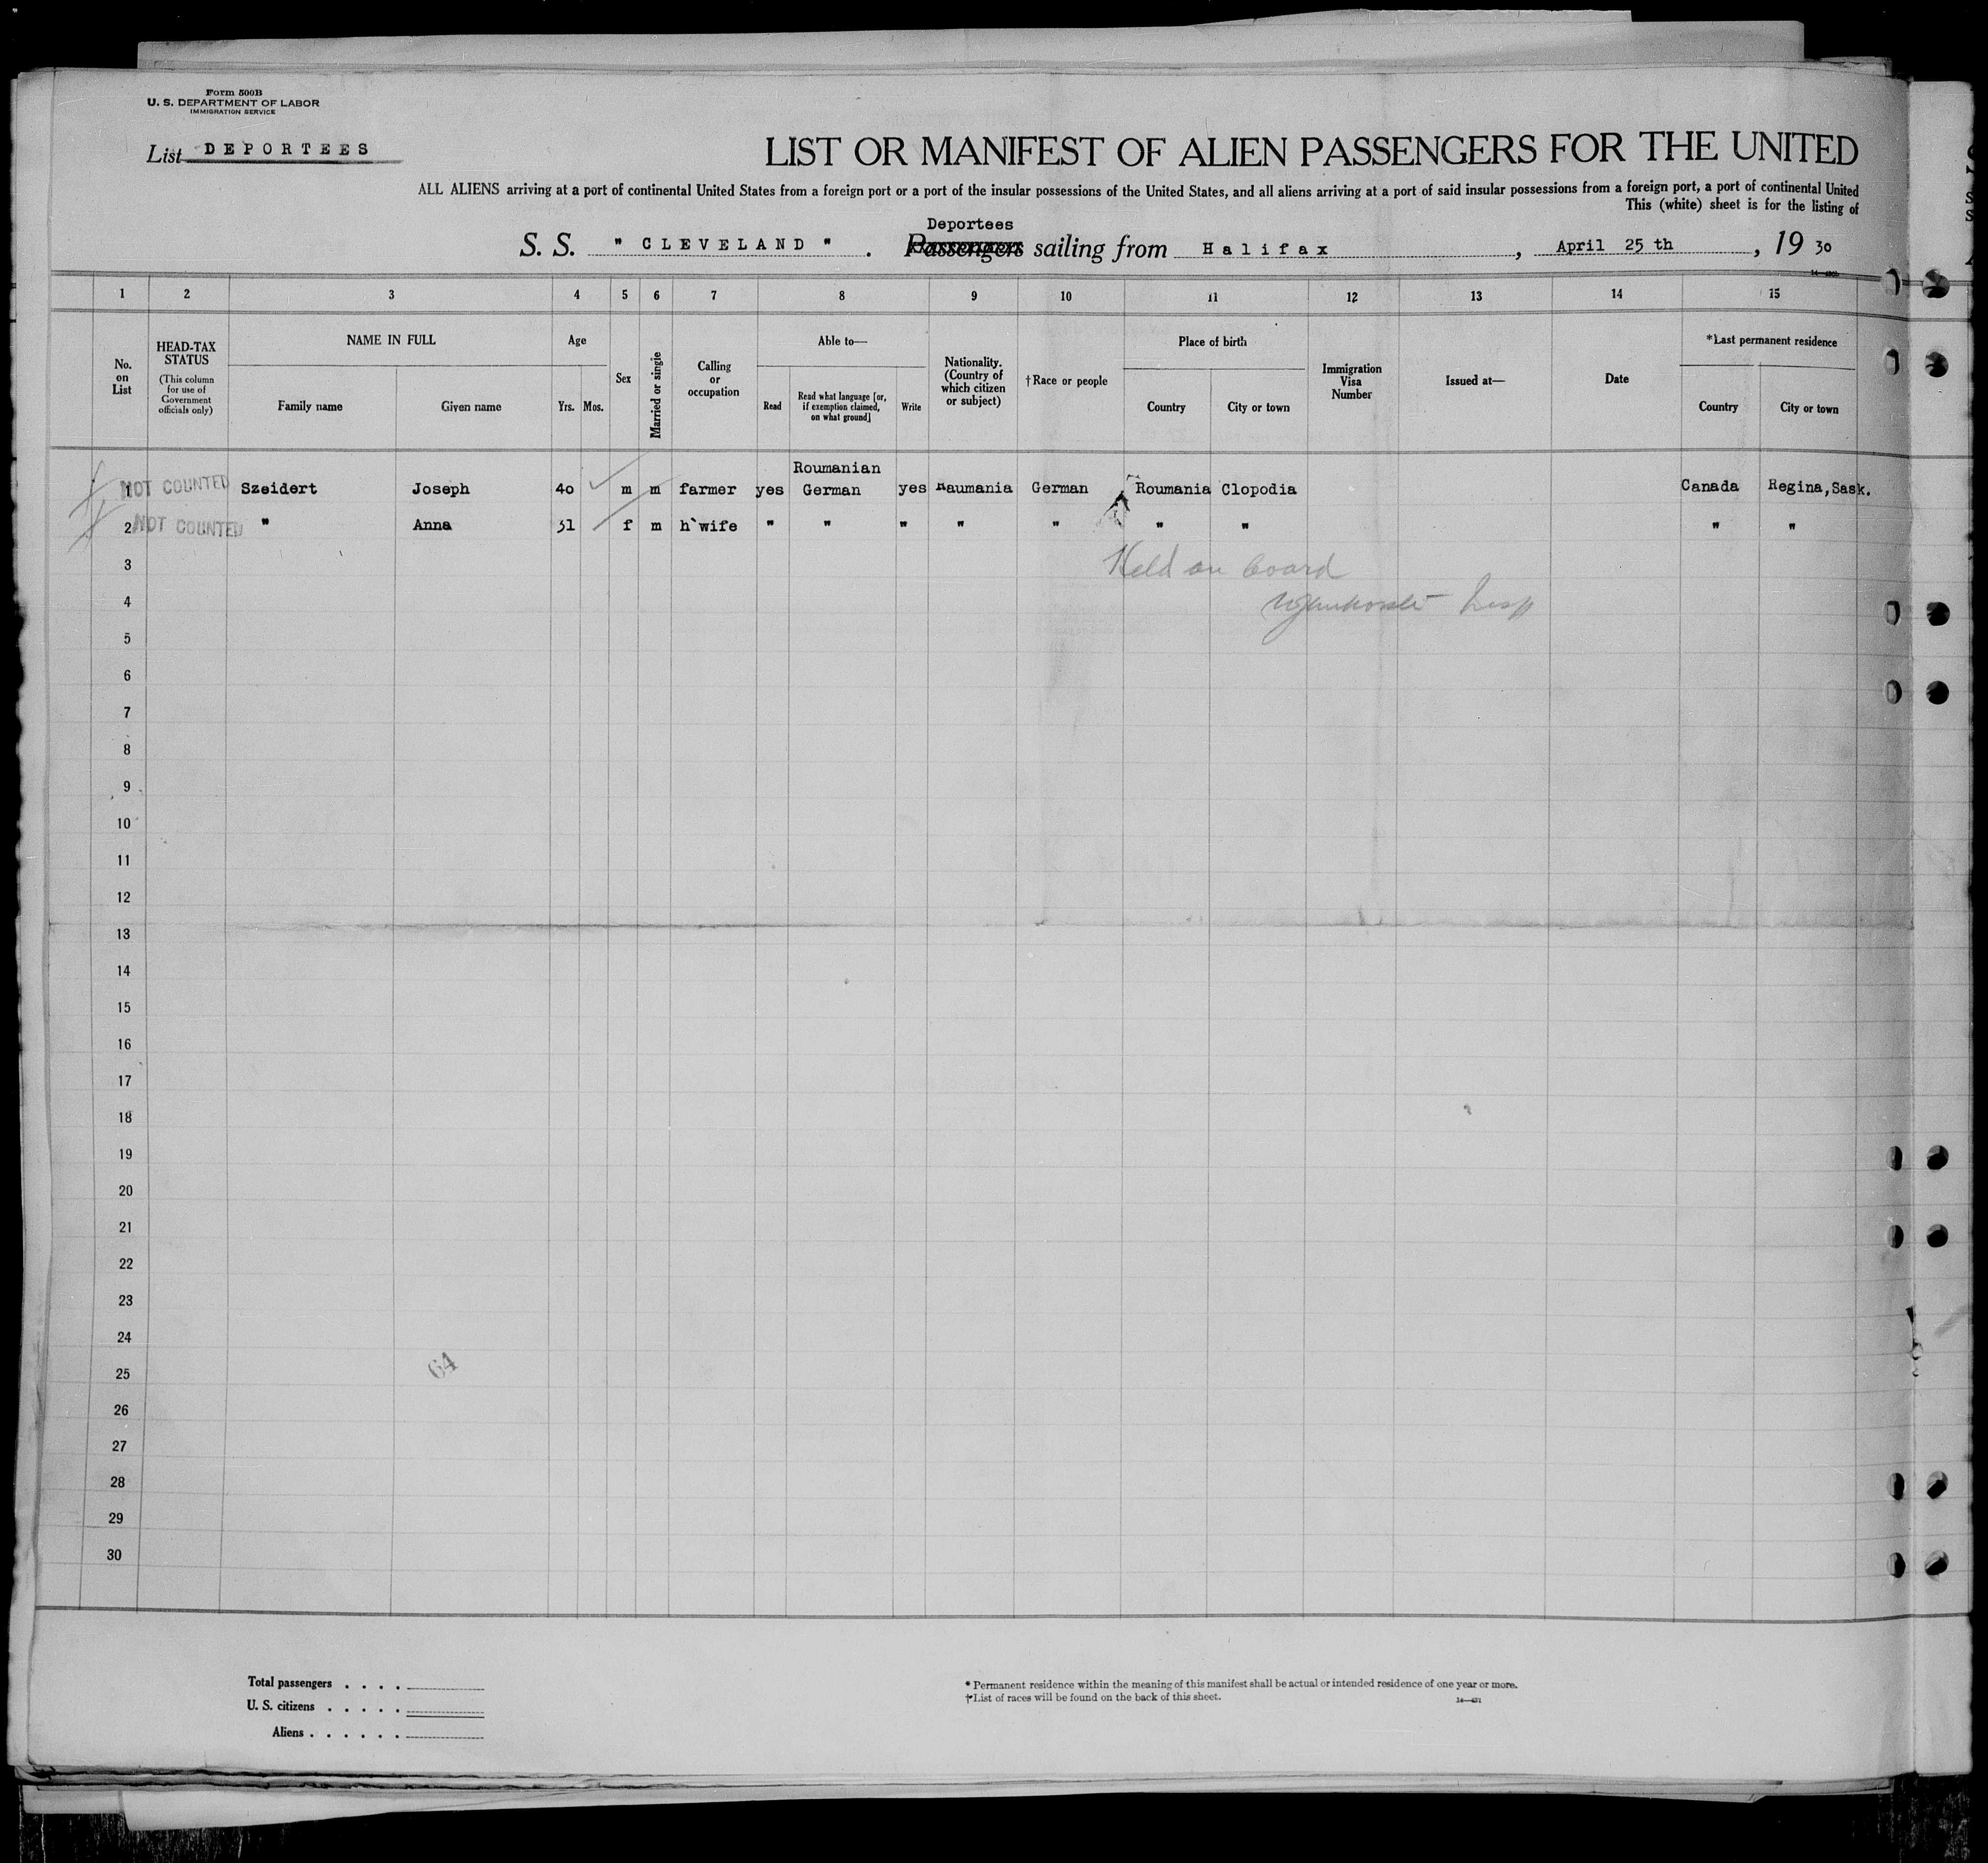 Form 500B
U. S. DEPARTMENT OF LABOR
IMMIGRATION SERVICE
List DEPORTEES
LIST OR MANIFEST OF ALIEN PASSENGERS FOR THE UNITED
ALL ALIENS arriving at a port of continental United States from a foreign port or a port of the insular possessions of the United States, and all aliens arriving at a port of said insular possessions from a foreign port, a port of continental United
This (white) sheet is for the listing of
Deportees
S. S. " CLEVELAND " . Passengers sailing from Halifax , April 25 th , 19 30
1 2 3 4 5 6 7 8 9 10 11 12 13 14 15
No. on List
HEAD-TAX STATUS
(This column for use of Government officials only)
NAME IN FULL
Family name Given name
Age
Yrs. Mos.
Sex
Married or single
Calling or occupation
Able to—
Read
Read what language [or, if exemption claimed, on what ground]
Write
Nationality. (Country of which citizen or subject)
†Race or people
Place of birth
Country City or town
Immigration Visa Number
Issued at—
Date
*Last permanent residence
Country City or town
Roumanian
1 NOT COUNTED Szeidert Joseph 40 m m farmer yes German yes Raumania German Roumania Clopodia Canada Regina,Sask.
2 NOT COUNTED " Anna 31 f m h`wife " " " " " " " " "
3
Held on board
4
5
6
7
8
9
10
11
12
13
14
15
16
17
18
19
20
21
22
23
24
64
25
26
27
28
29
30
Total passengers . . . .
U. S. citizens . . . . .
Aliens . . . . . .
* Permanent residence within the meaning of this manifest shall be actual or intended residence of one year or more.
†List of races will be found on the back of this sheet.